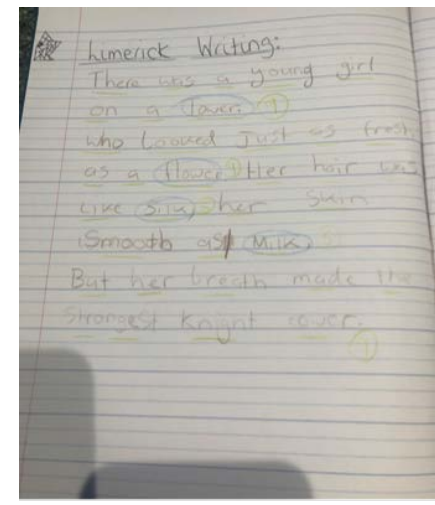 Limerick Writing:
There was a young girl
on a tower. 1
who looked Just as fresh
as a flower 1 Her hair was
like Silk, 2 her skin
Smooth as Milk
But her breath made the
strongest Knight cower.
1